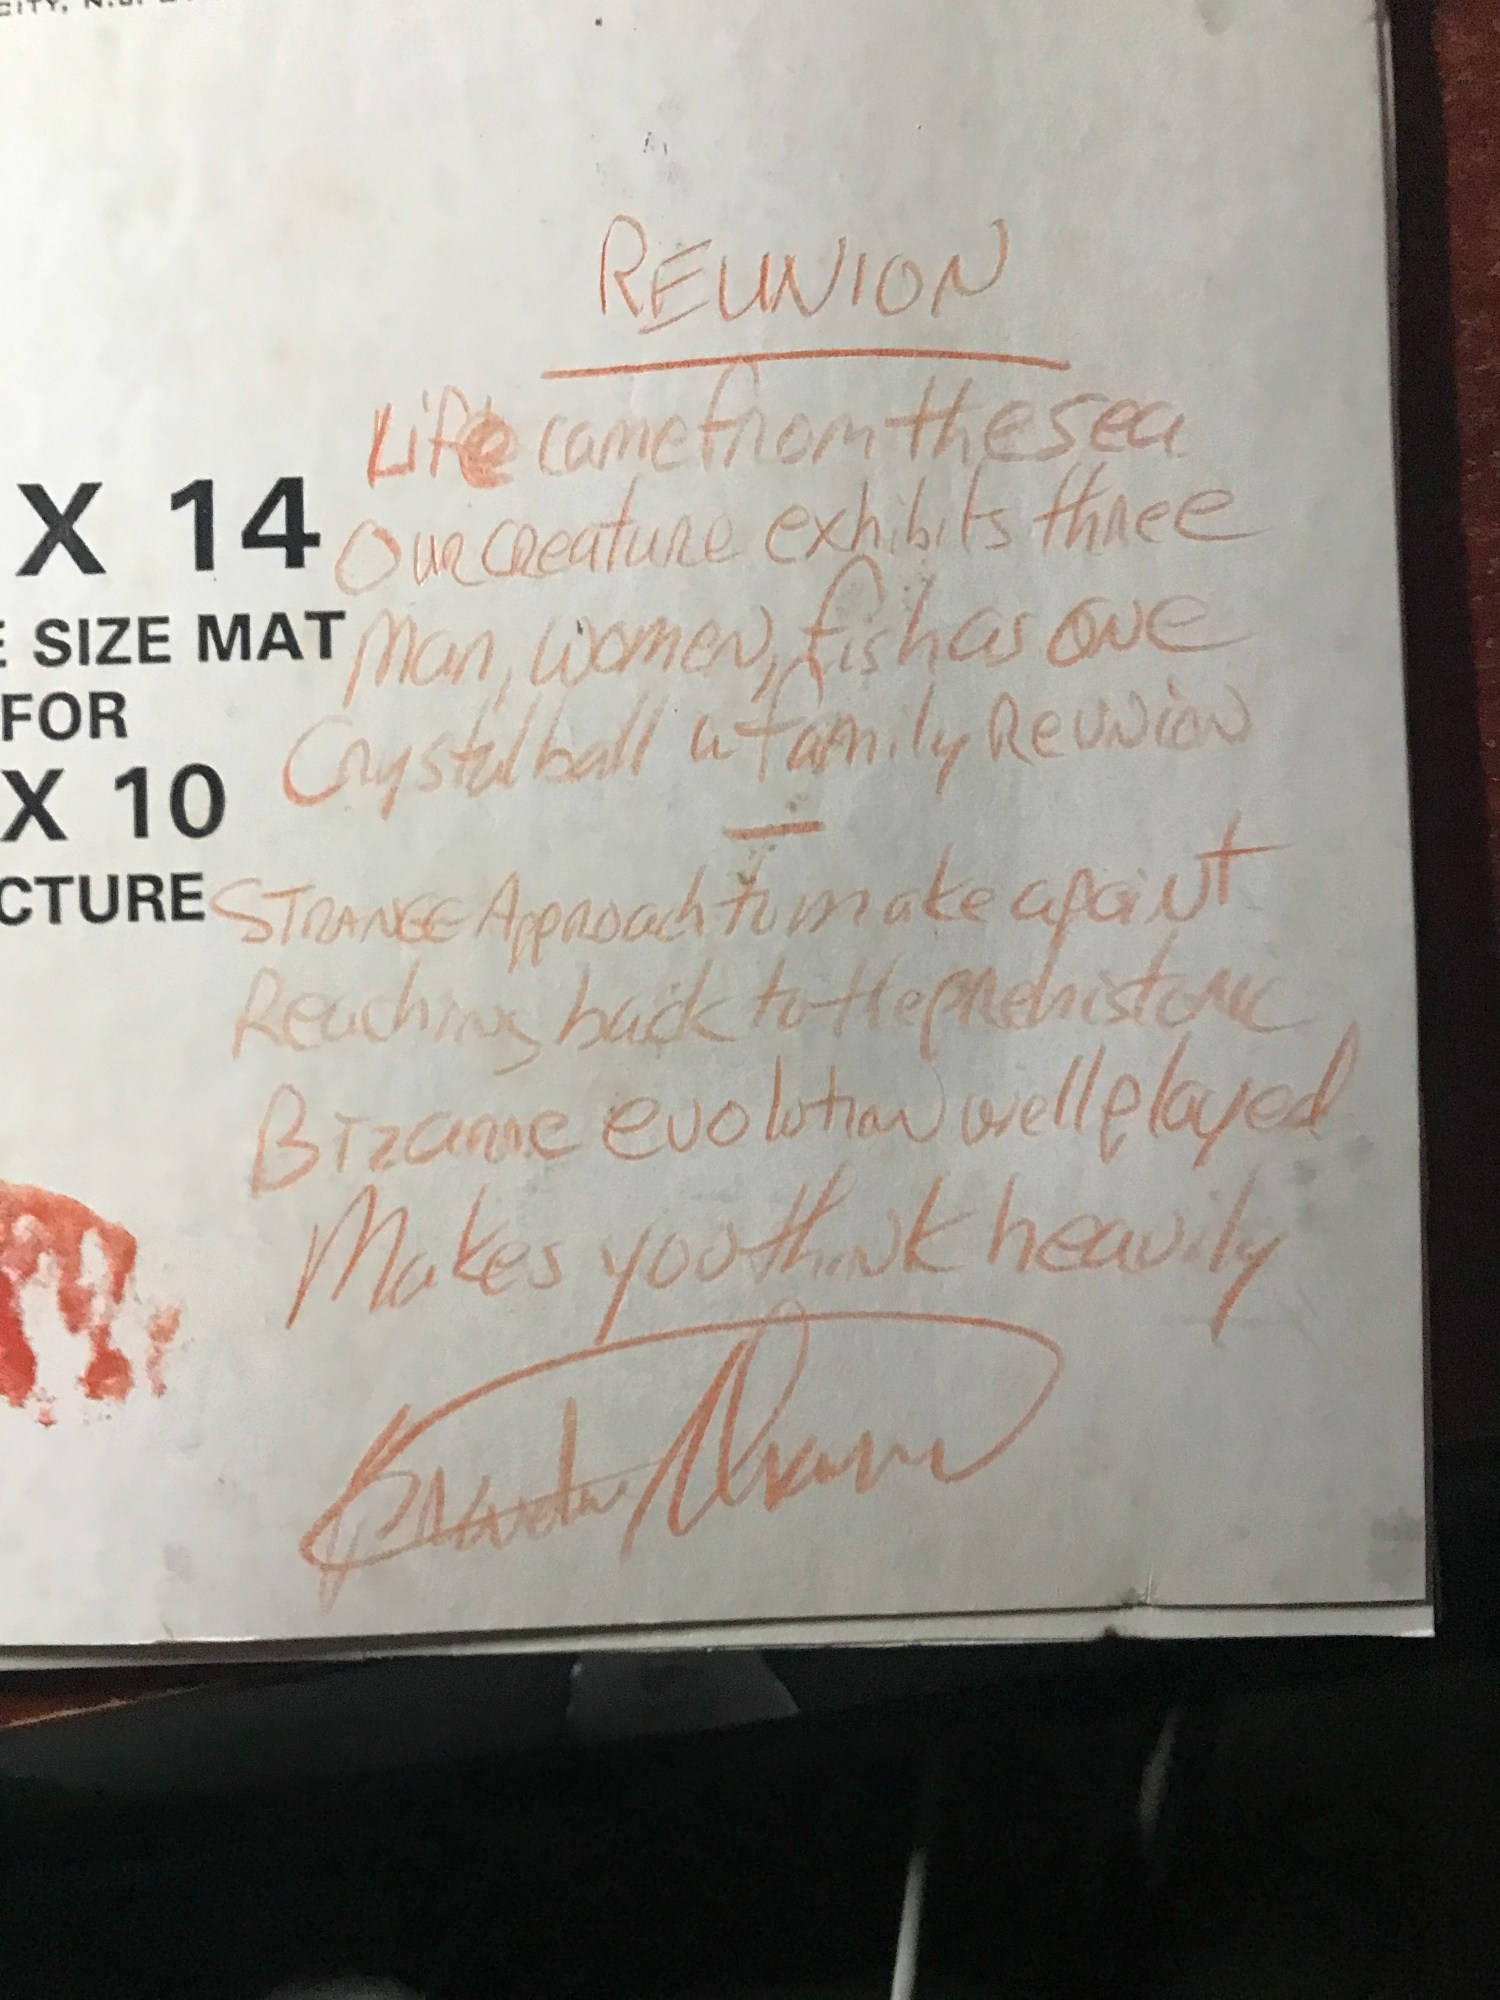 CITY, N.J.
REUNION
Life came from the sea
X 14
Our creature exhibits three
E SIZE MAT
Man, women, fish as one
FOR
Crystal ball a family Reunion
X 10
CTURE
STRANGE Approach to make a paint
Reaching back to the prehistoric
Bizarre evolution well played
Makes you think heavily